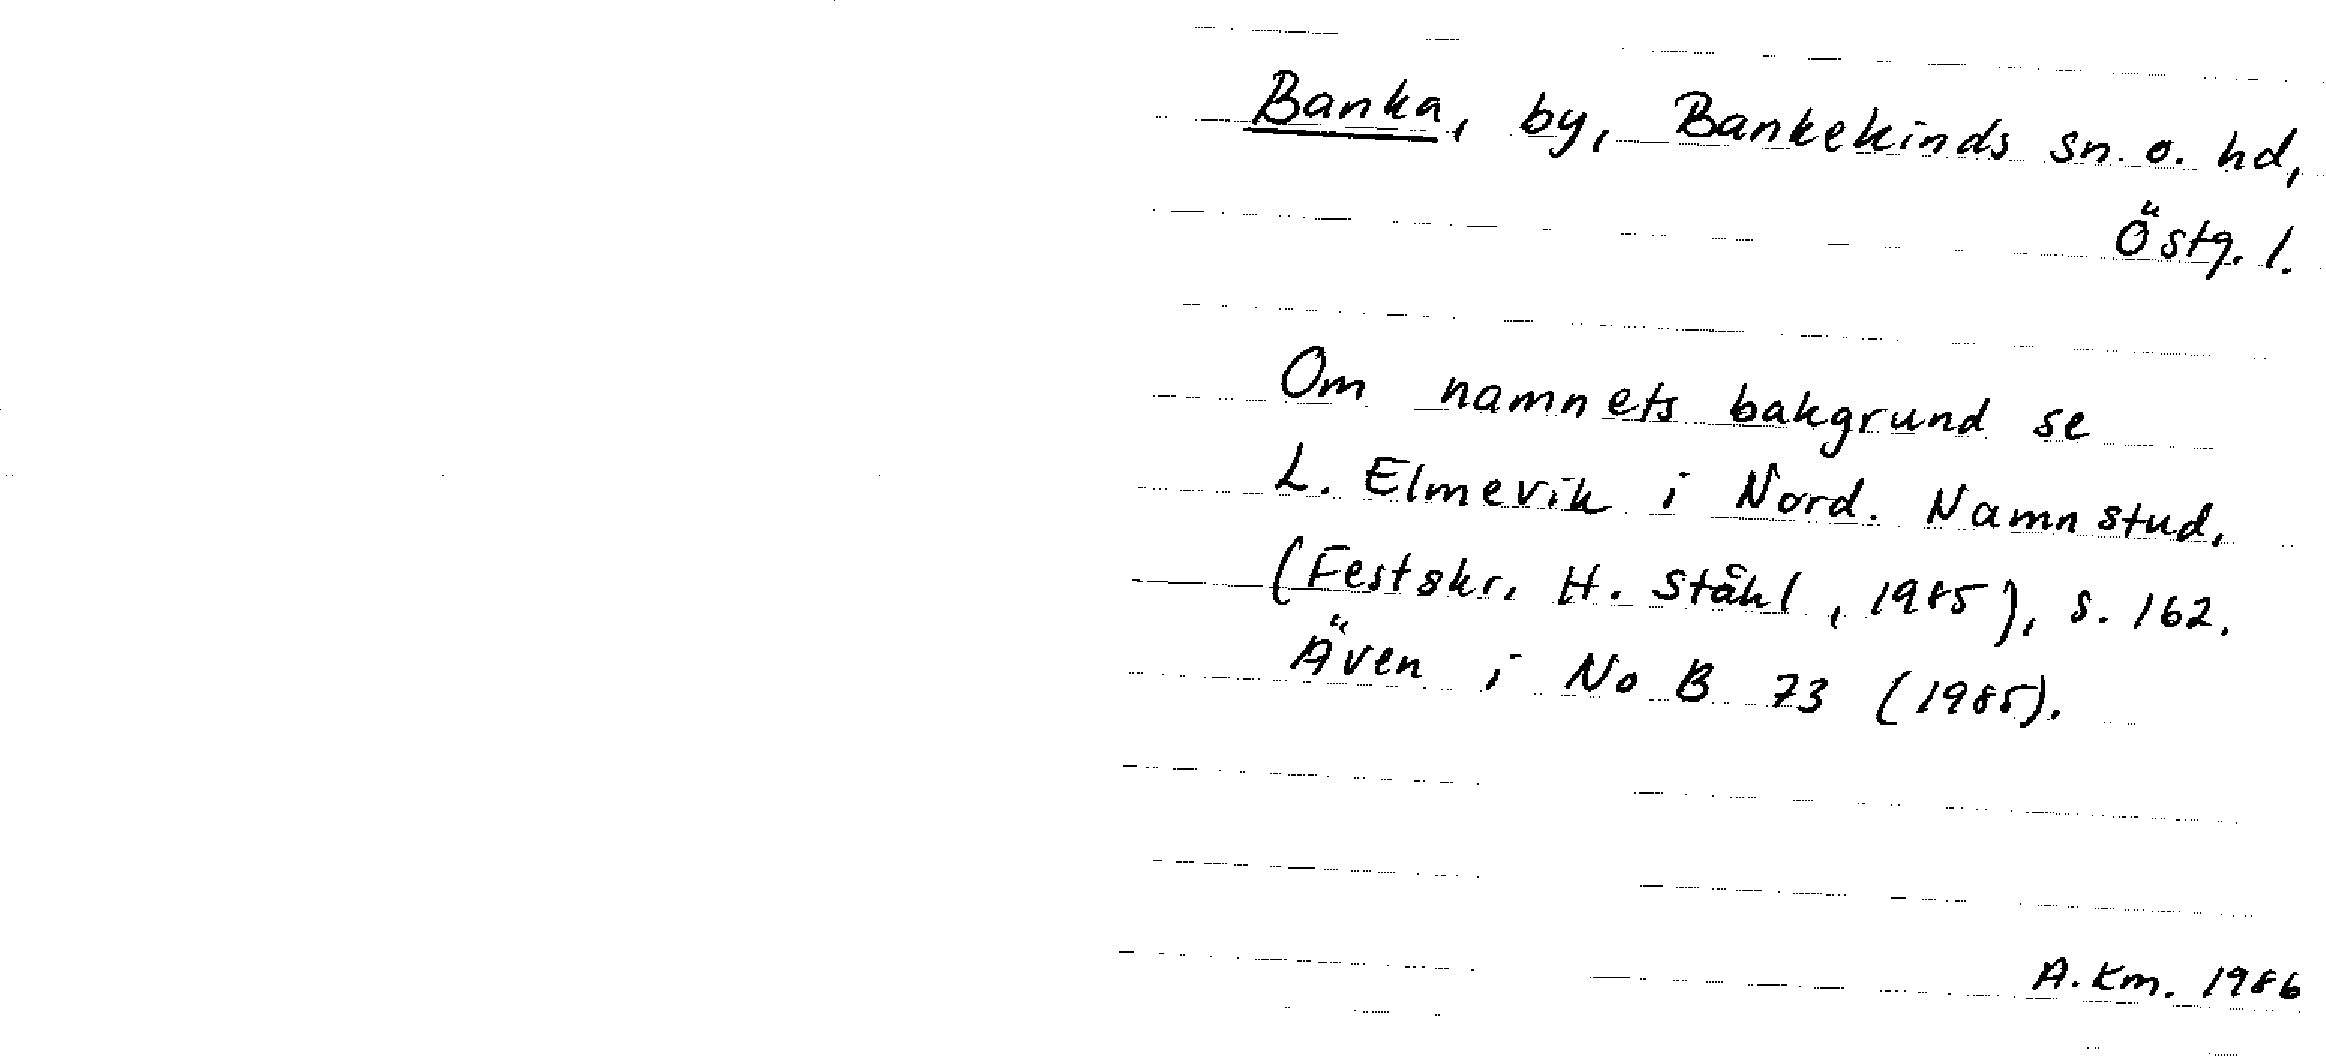 Banka, by, Bankekinds sn. o. hd,
Östg. l.
Om namnets bakgrund se
L. Elmevik i Nord. Namnstud.
(Festskr. H. Ståhl, 1985), s. 162.
Även i NoB 73 (1985).
A. Km. 1986